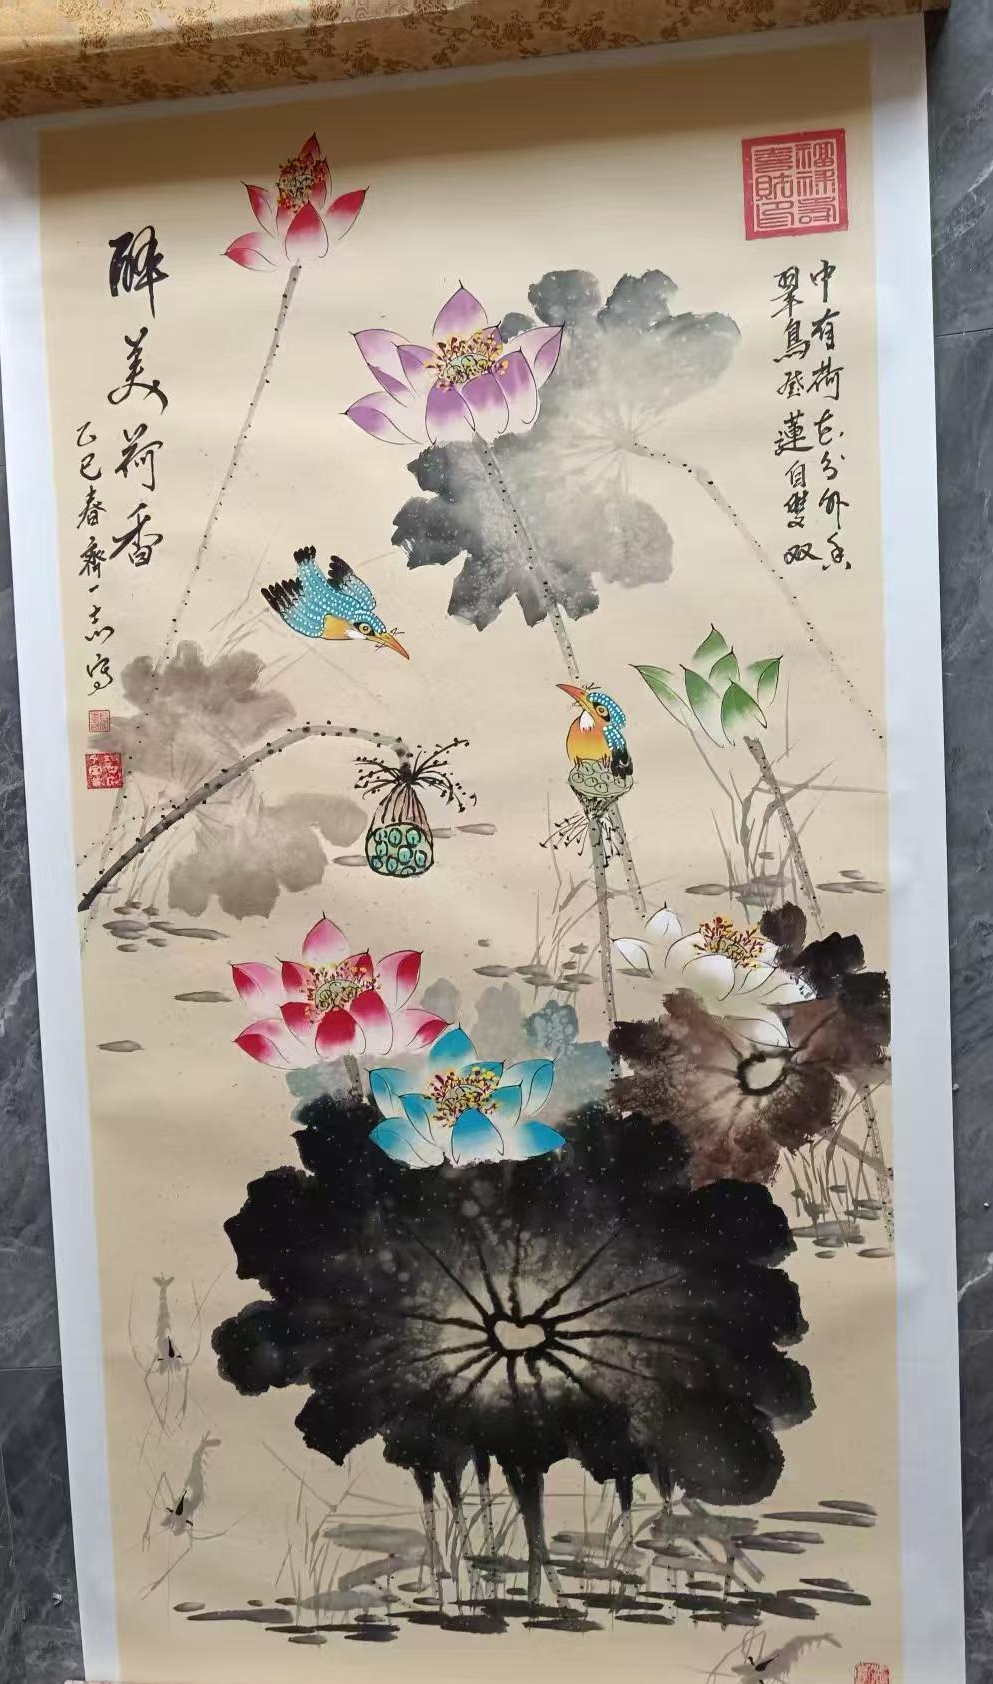 福禄寿
喜財印
中有荷花分外香
翠鳥登蓮自雙双
醉美荷香
乙巳春齊一志寫